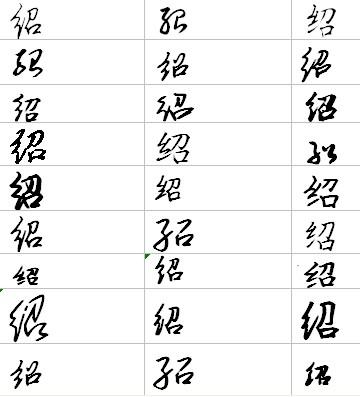 绍 绍 绍
绍 绍 绍
绍 绍 绍
绍 绍 绍
绍 绍 绍
绍 绍 绍
绍 绍 绍
绍 绍 绍
绍 绍 绍